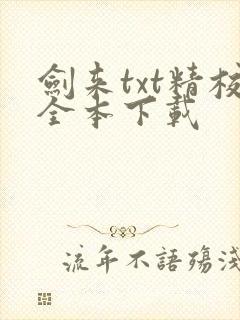 劍来txt精校
全本下載
流年不語殤淺